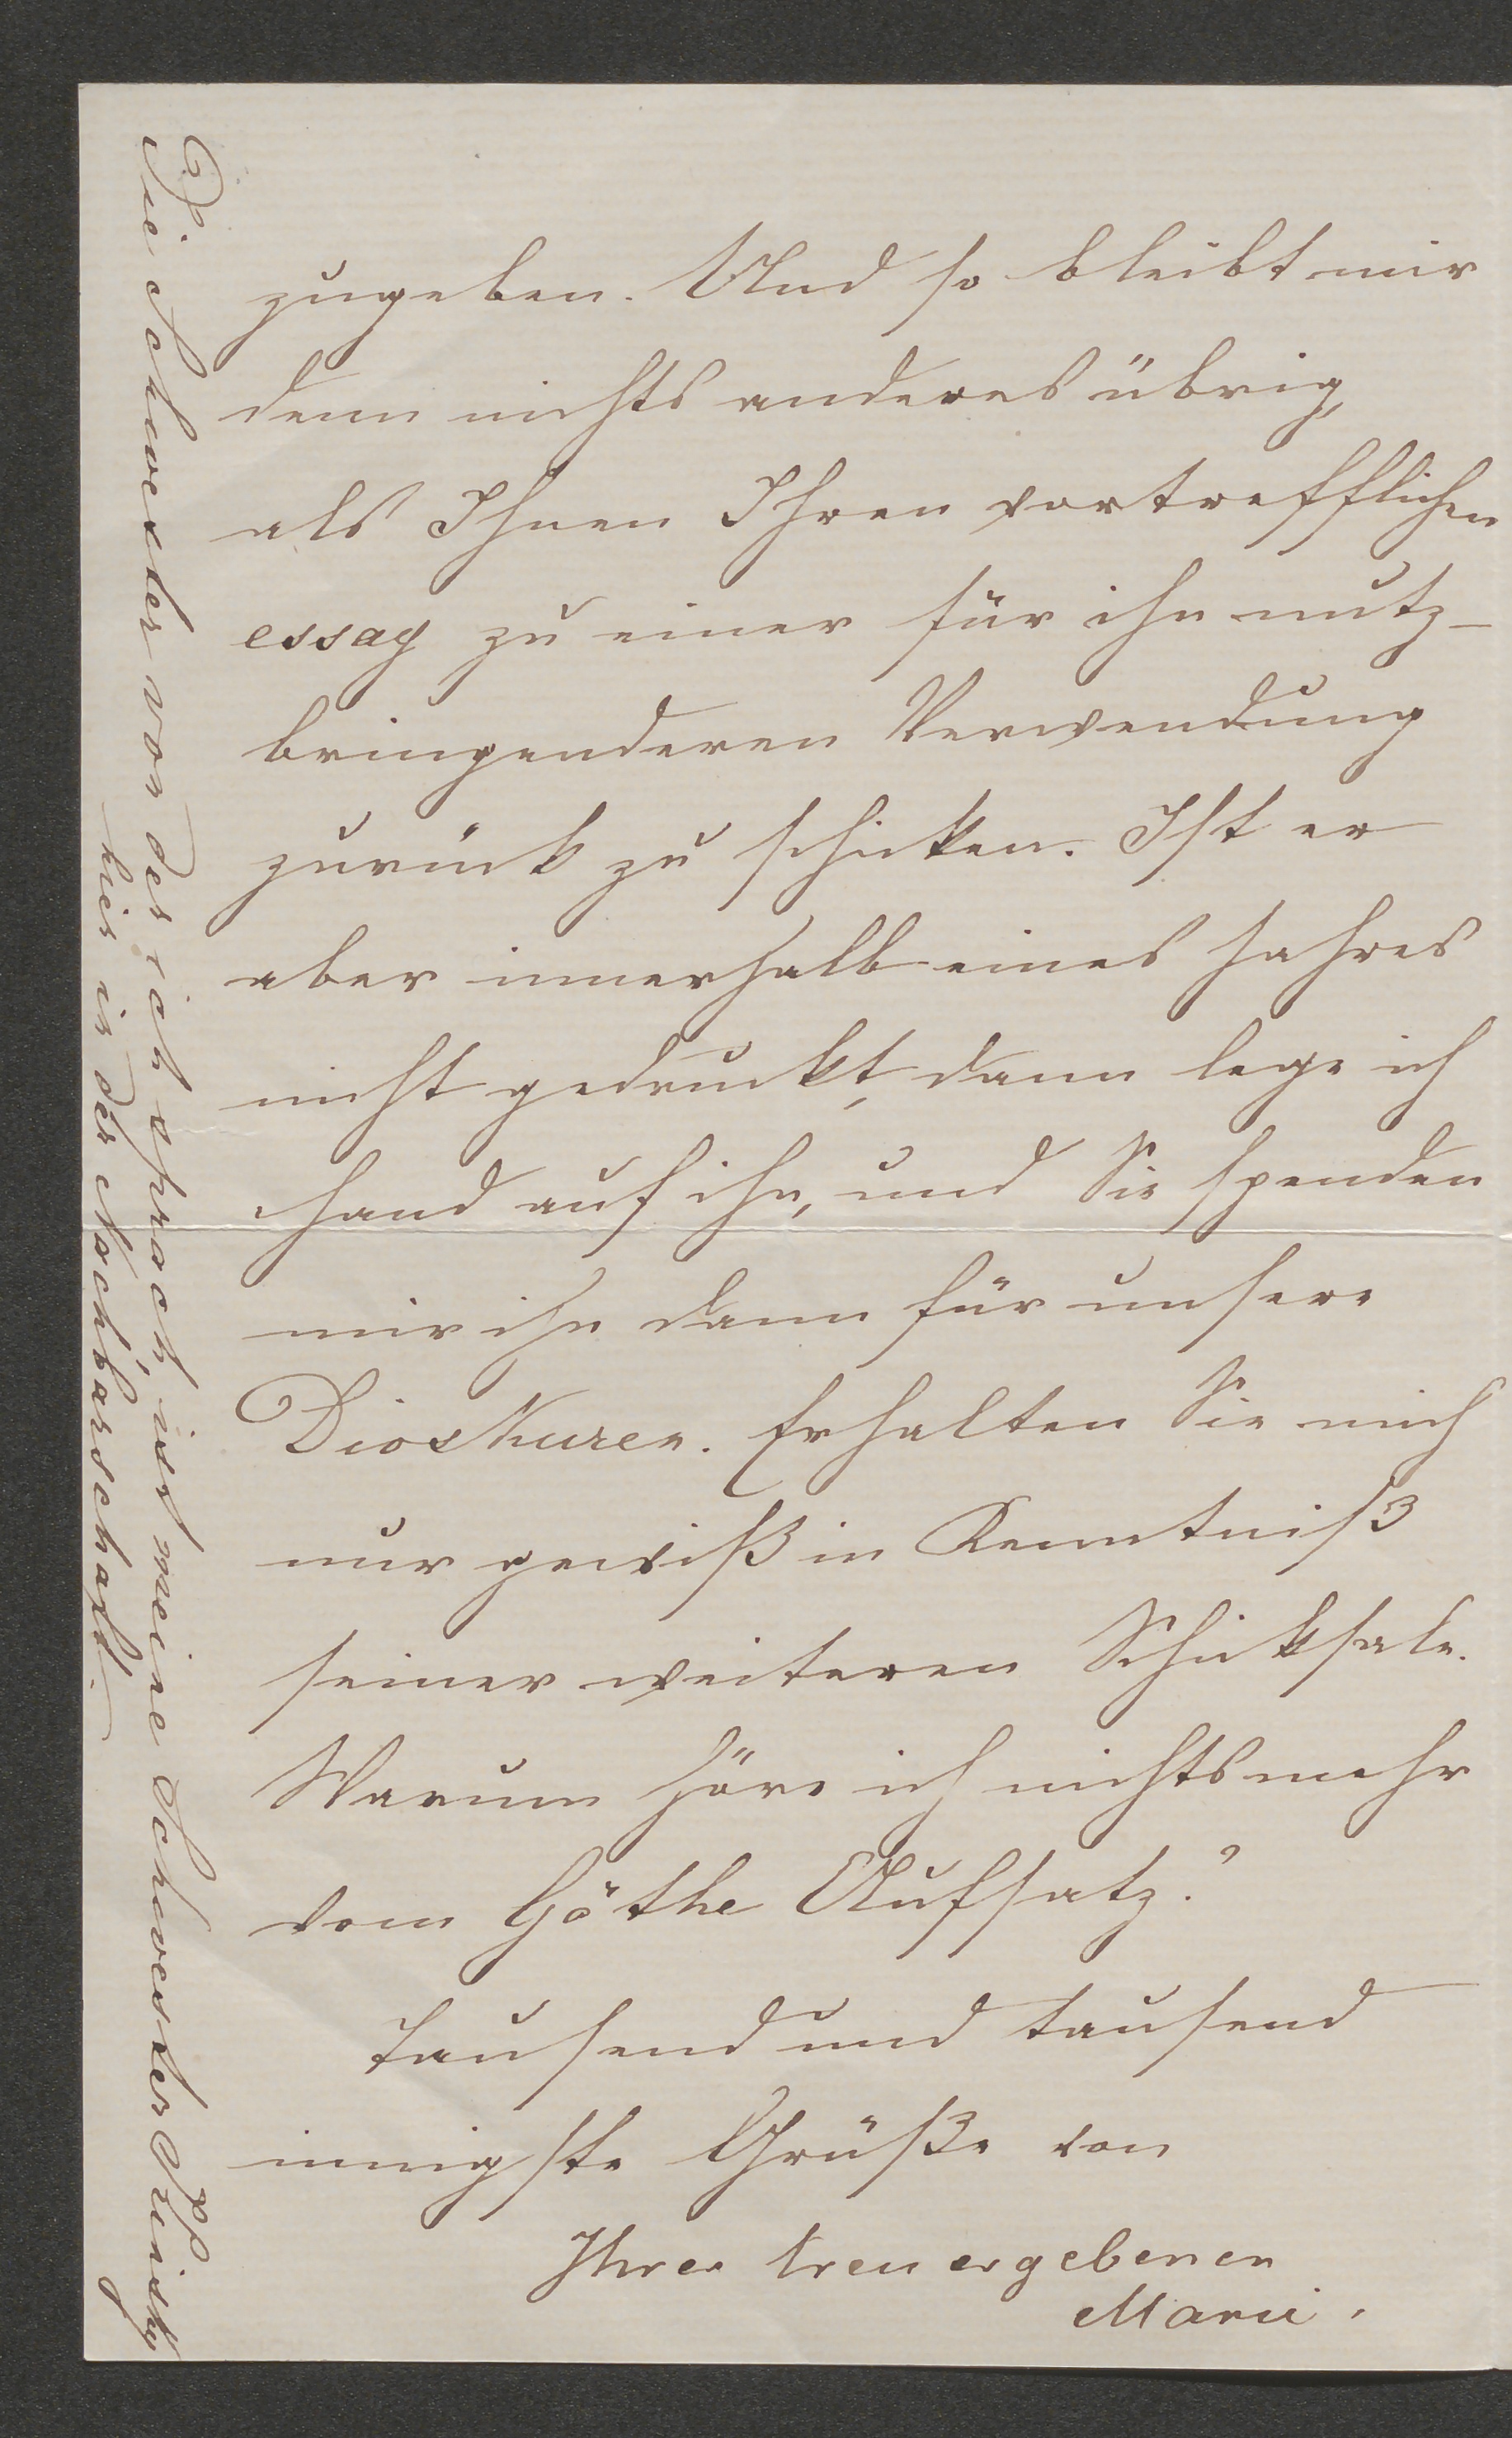 zugeben. Und so bleibt mir
denn nichts anderes übrig,
als Ihnen Ihren vortrefflichen
essay zu einer für ihn nutz-
bringenderen Verwendung
zurück zu schicken. Ist er
aber innerhalb eines Jahres
nicht gedruckt, dann lege ich
Hand auf ihn, und Sie spenden
mir ihn dann für unsere
Dioskuren. Erhalten Sie mich
nur gewiß in Kenntniß
seiner weiteren Schicksale.
Warum höre ich nichts mehr
vom Göthe Aufsatz?
Tausend und tausend
innigste Grüße von
Ihrer treu ergebenen
Marie.
Die Schwester von der ich sprach, ist meine Schwester Kinsky
hier in der Nachbarschaft.